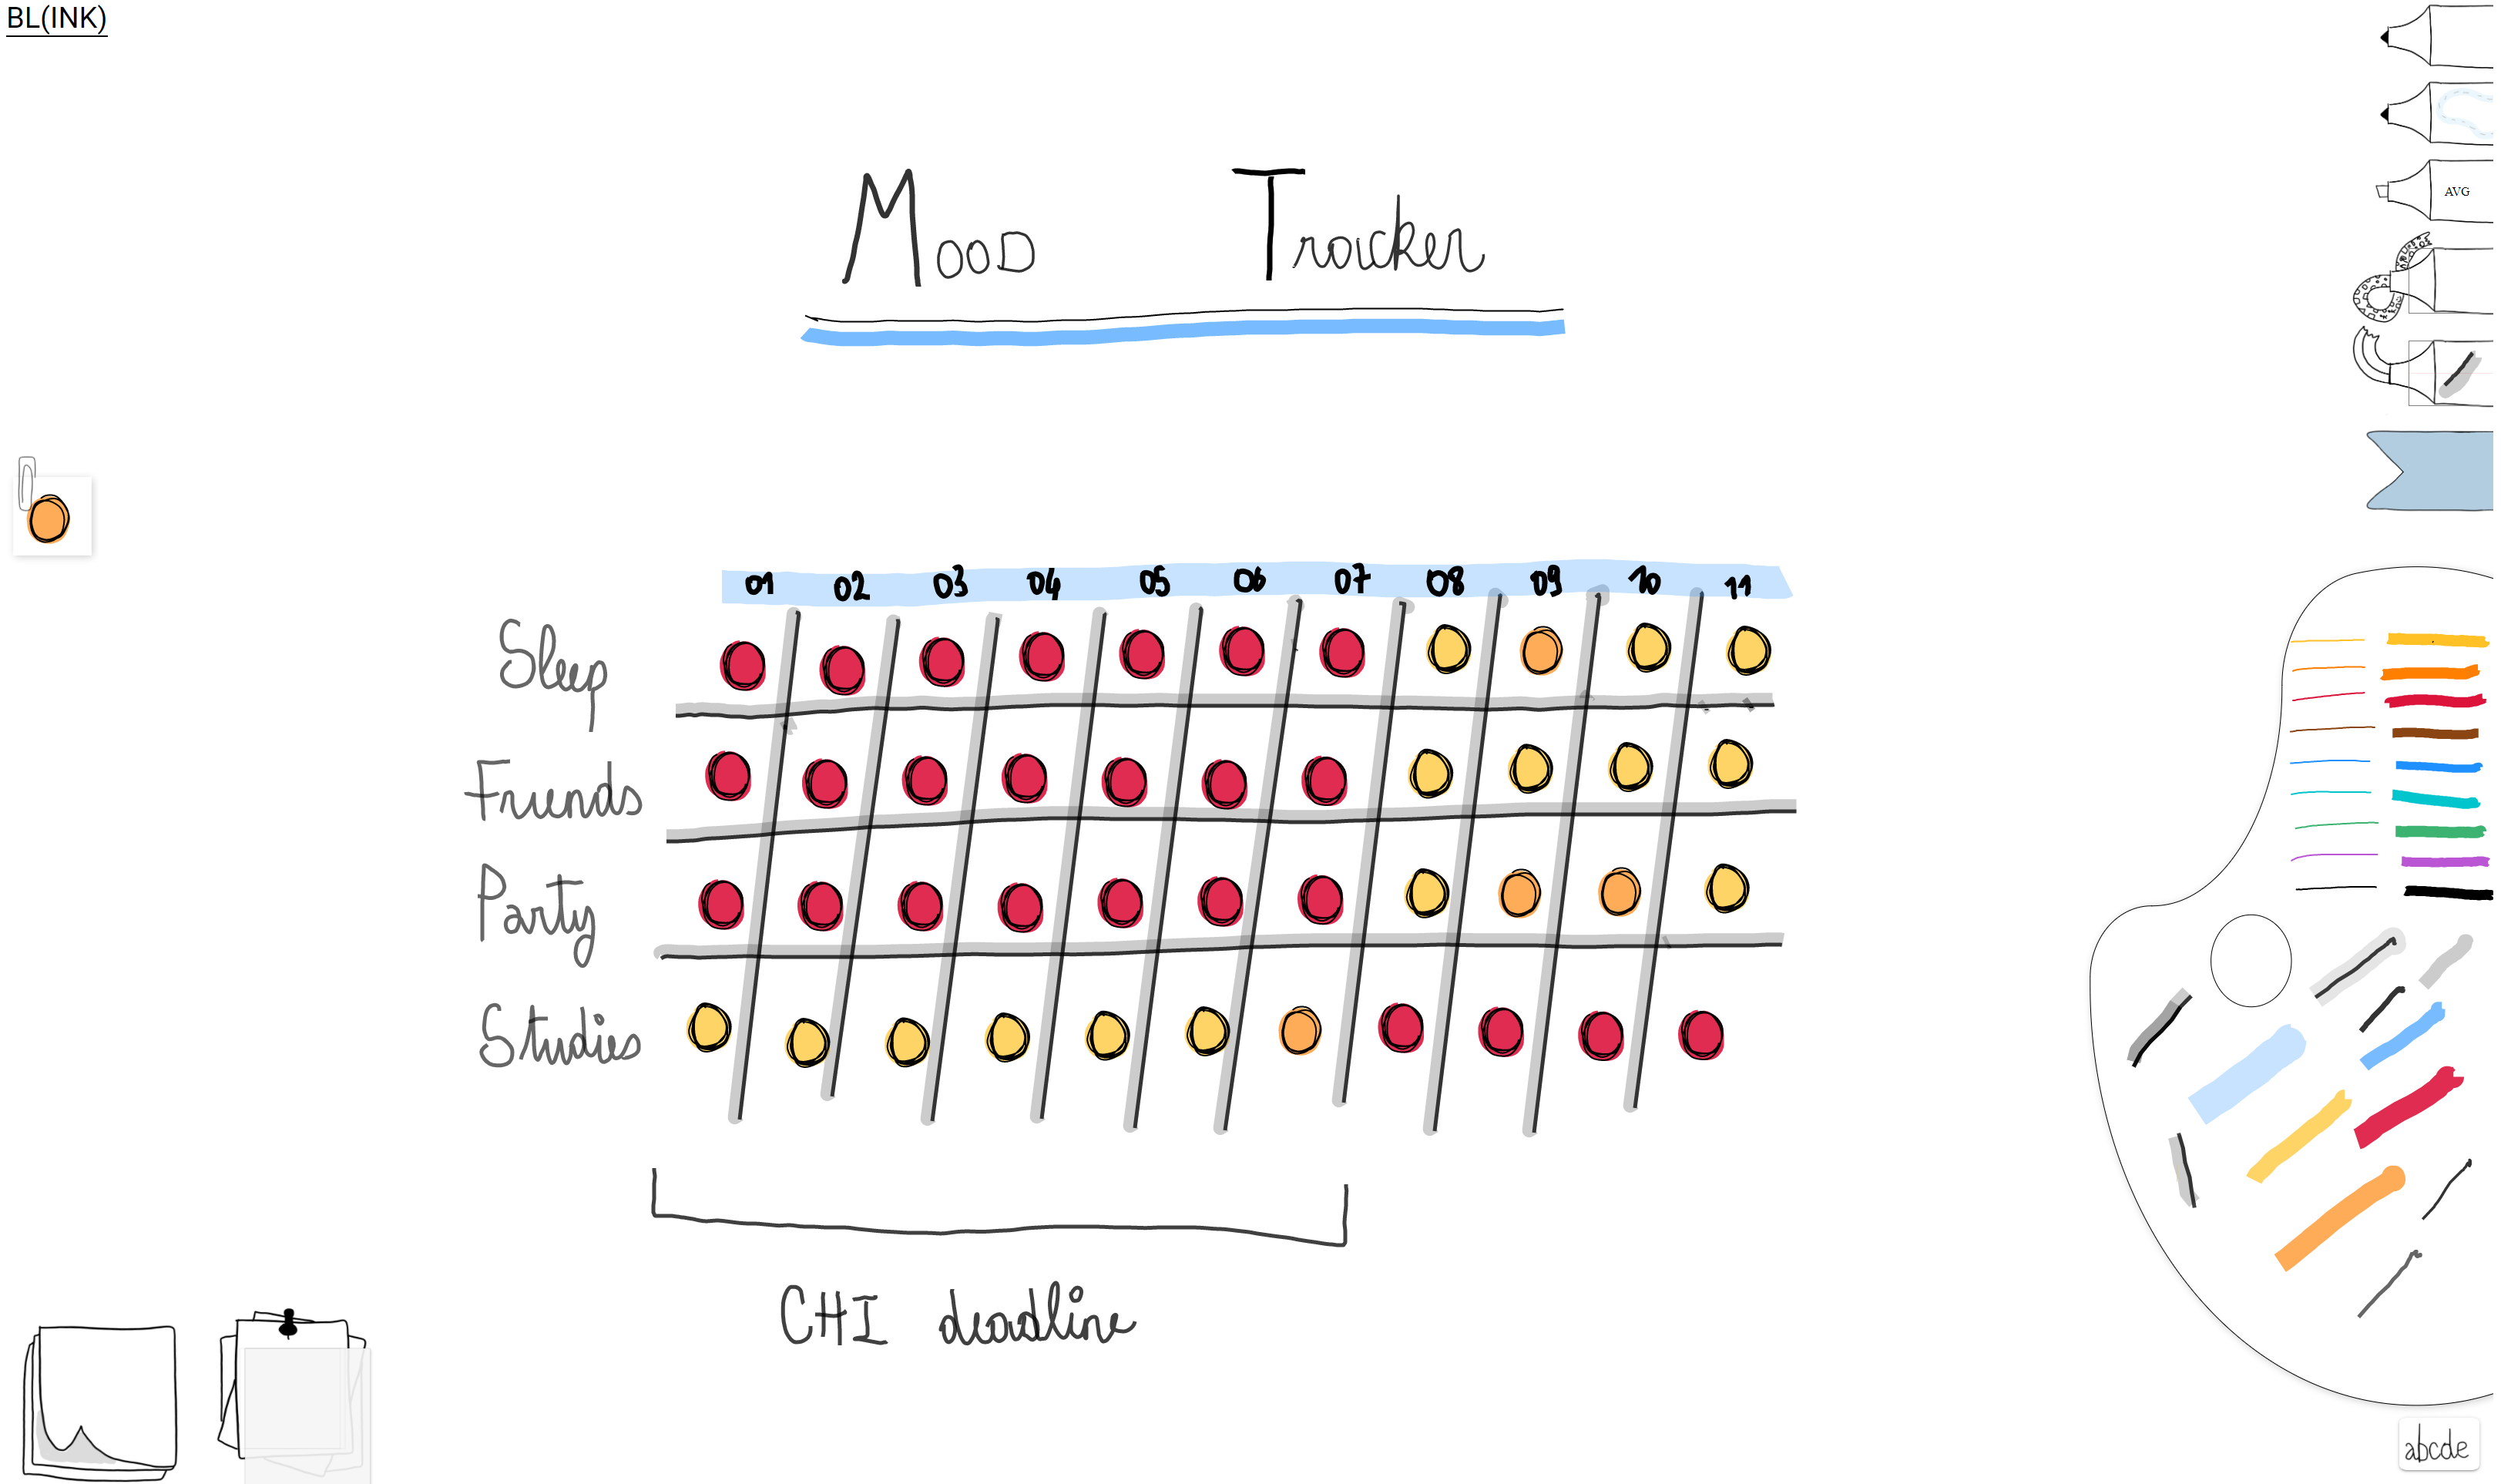 BL(INK)
AVG
Mood Tracker
01 02 03 04 05 06 07 08 09 10 11
Sleep
Friends
Party
Studies
CHI deadline
abcde